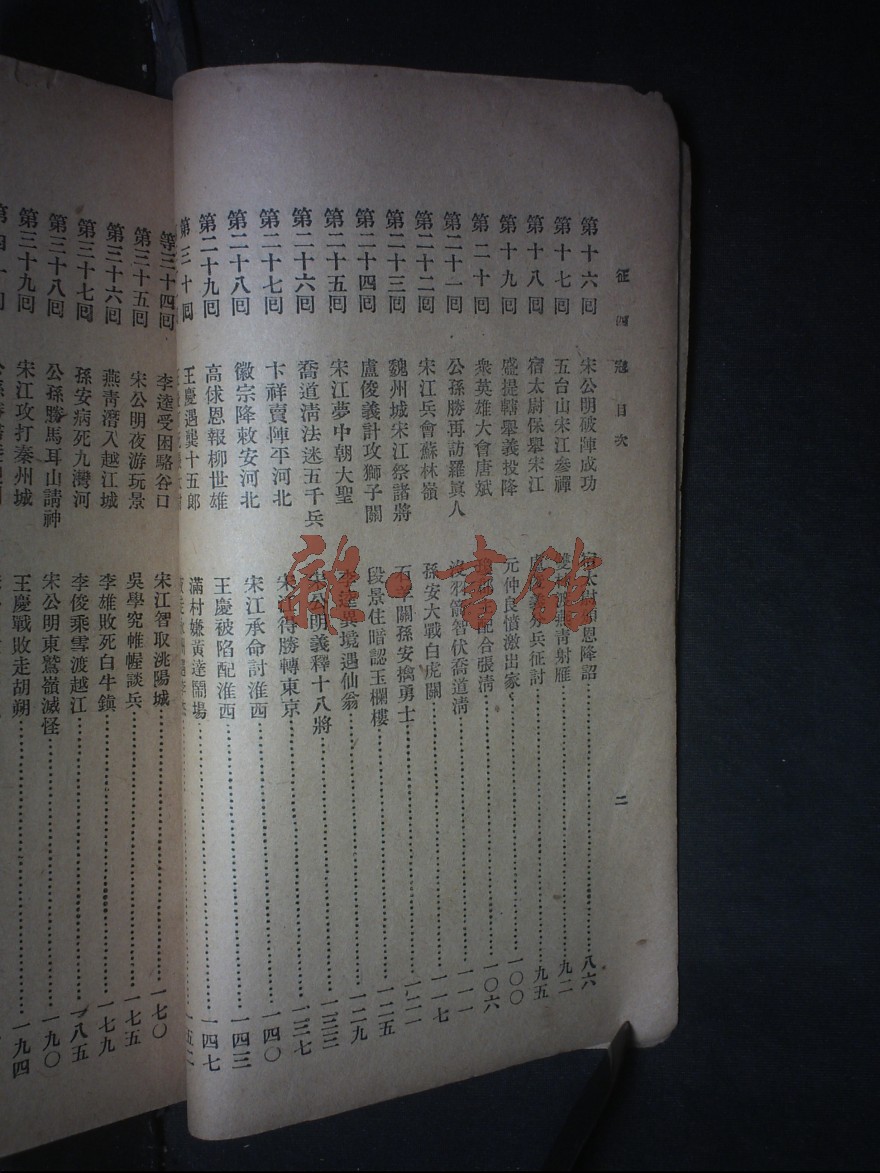 征四寇目次
二
第十六囘 宋公明破陣成功 宿太尉頒恩降詔 八六
第十七囘 五台山宋江參禪 雙林渡燕青射雁 九二
第十八囘 宿太尉保舉宋江 盧俊義分兵征討 九五
第十九囘 盛提轄舉義投降 元仲良憤激出家 一〇〇
第二十囘 衆英雄大會唐斌 配合張清 一〇六
第二十一囘 公孫勝再訪羅眞人 沒羽箭智伏喬道清 一一一
第二十二囘 宋江兵會蘇林嶺 孫安大戰白虎關 一一七
第二十三囘 魏州城宋江祭諸將 石羊關孫安擒勇士 一二一
第二十四囘 盧俊義計攻獅子關 段景住暗認玉欄樓 一二五
第二十五囘 宋江夢中朝大聖 李逵異境遇仙翁 一二九
第二十六囘 喬道清法迷五千兵 宋公明義釋十八將 一三三
第二十七囘 卞祥賣陣平河北 宋江得勝轉東京 一三七
第二十八囘 徽宗降敕安河北 宋江承命討淮西 一四〇
第二十九囘 高俅恩報柳世雄 王慶被陷配淮西 一四三
第三十囘 王慶遇龔十五郎 滿村嫌黃達鬧場 一四七
一五二
第三十四囘 李逵受困駱谷口 宋江智取洮陽城 一七〇
第三十五囘 宋公明夜游玩景 吳學究帷幄談兵 一七五
第三十六囘 燕青潛入越江城 李雄敗死白牛鎭 一七九
第三十七囘 孫安病死九灣河 李俊乘雪渡越江 一八五
第三十八囘 公孫勝馬耳山請神 宋公明東鷲嶺滅怪 一九〇
第三十九囘 宋江攻打秦州城 王慶戰敗走胡朔 一九四
雜·書館